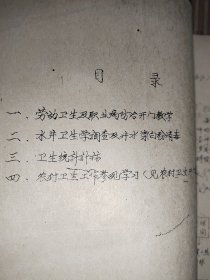 目 录
一、劳动卫生及职业病防治开门教学
二、水井卫生学调查及井水漂白粉消毒
三、卫生统计指标
四、农村卫生工作参观学习（见农村卫生